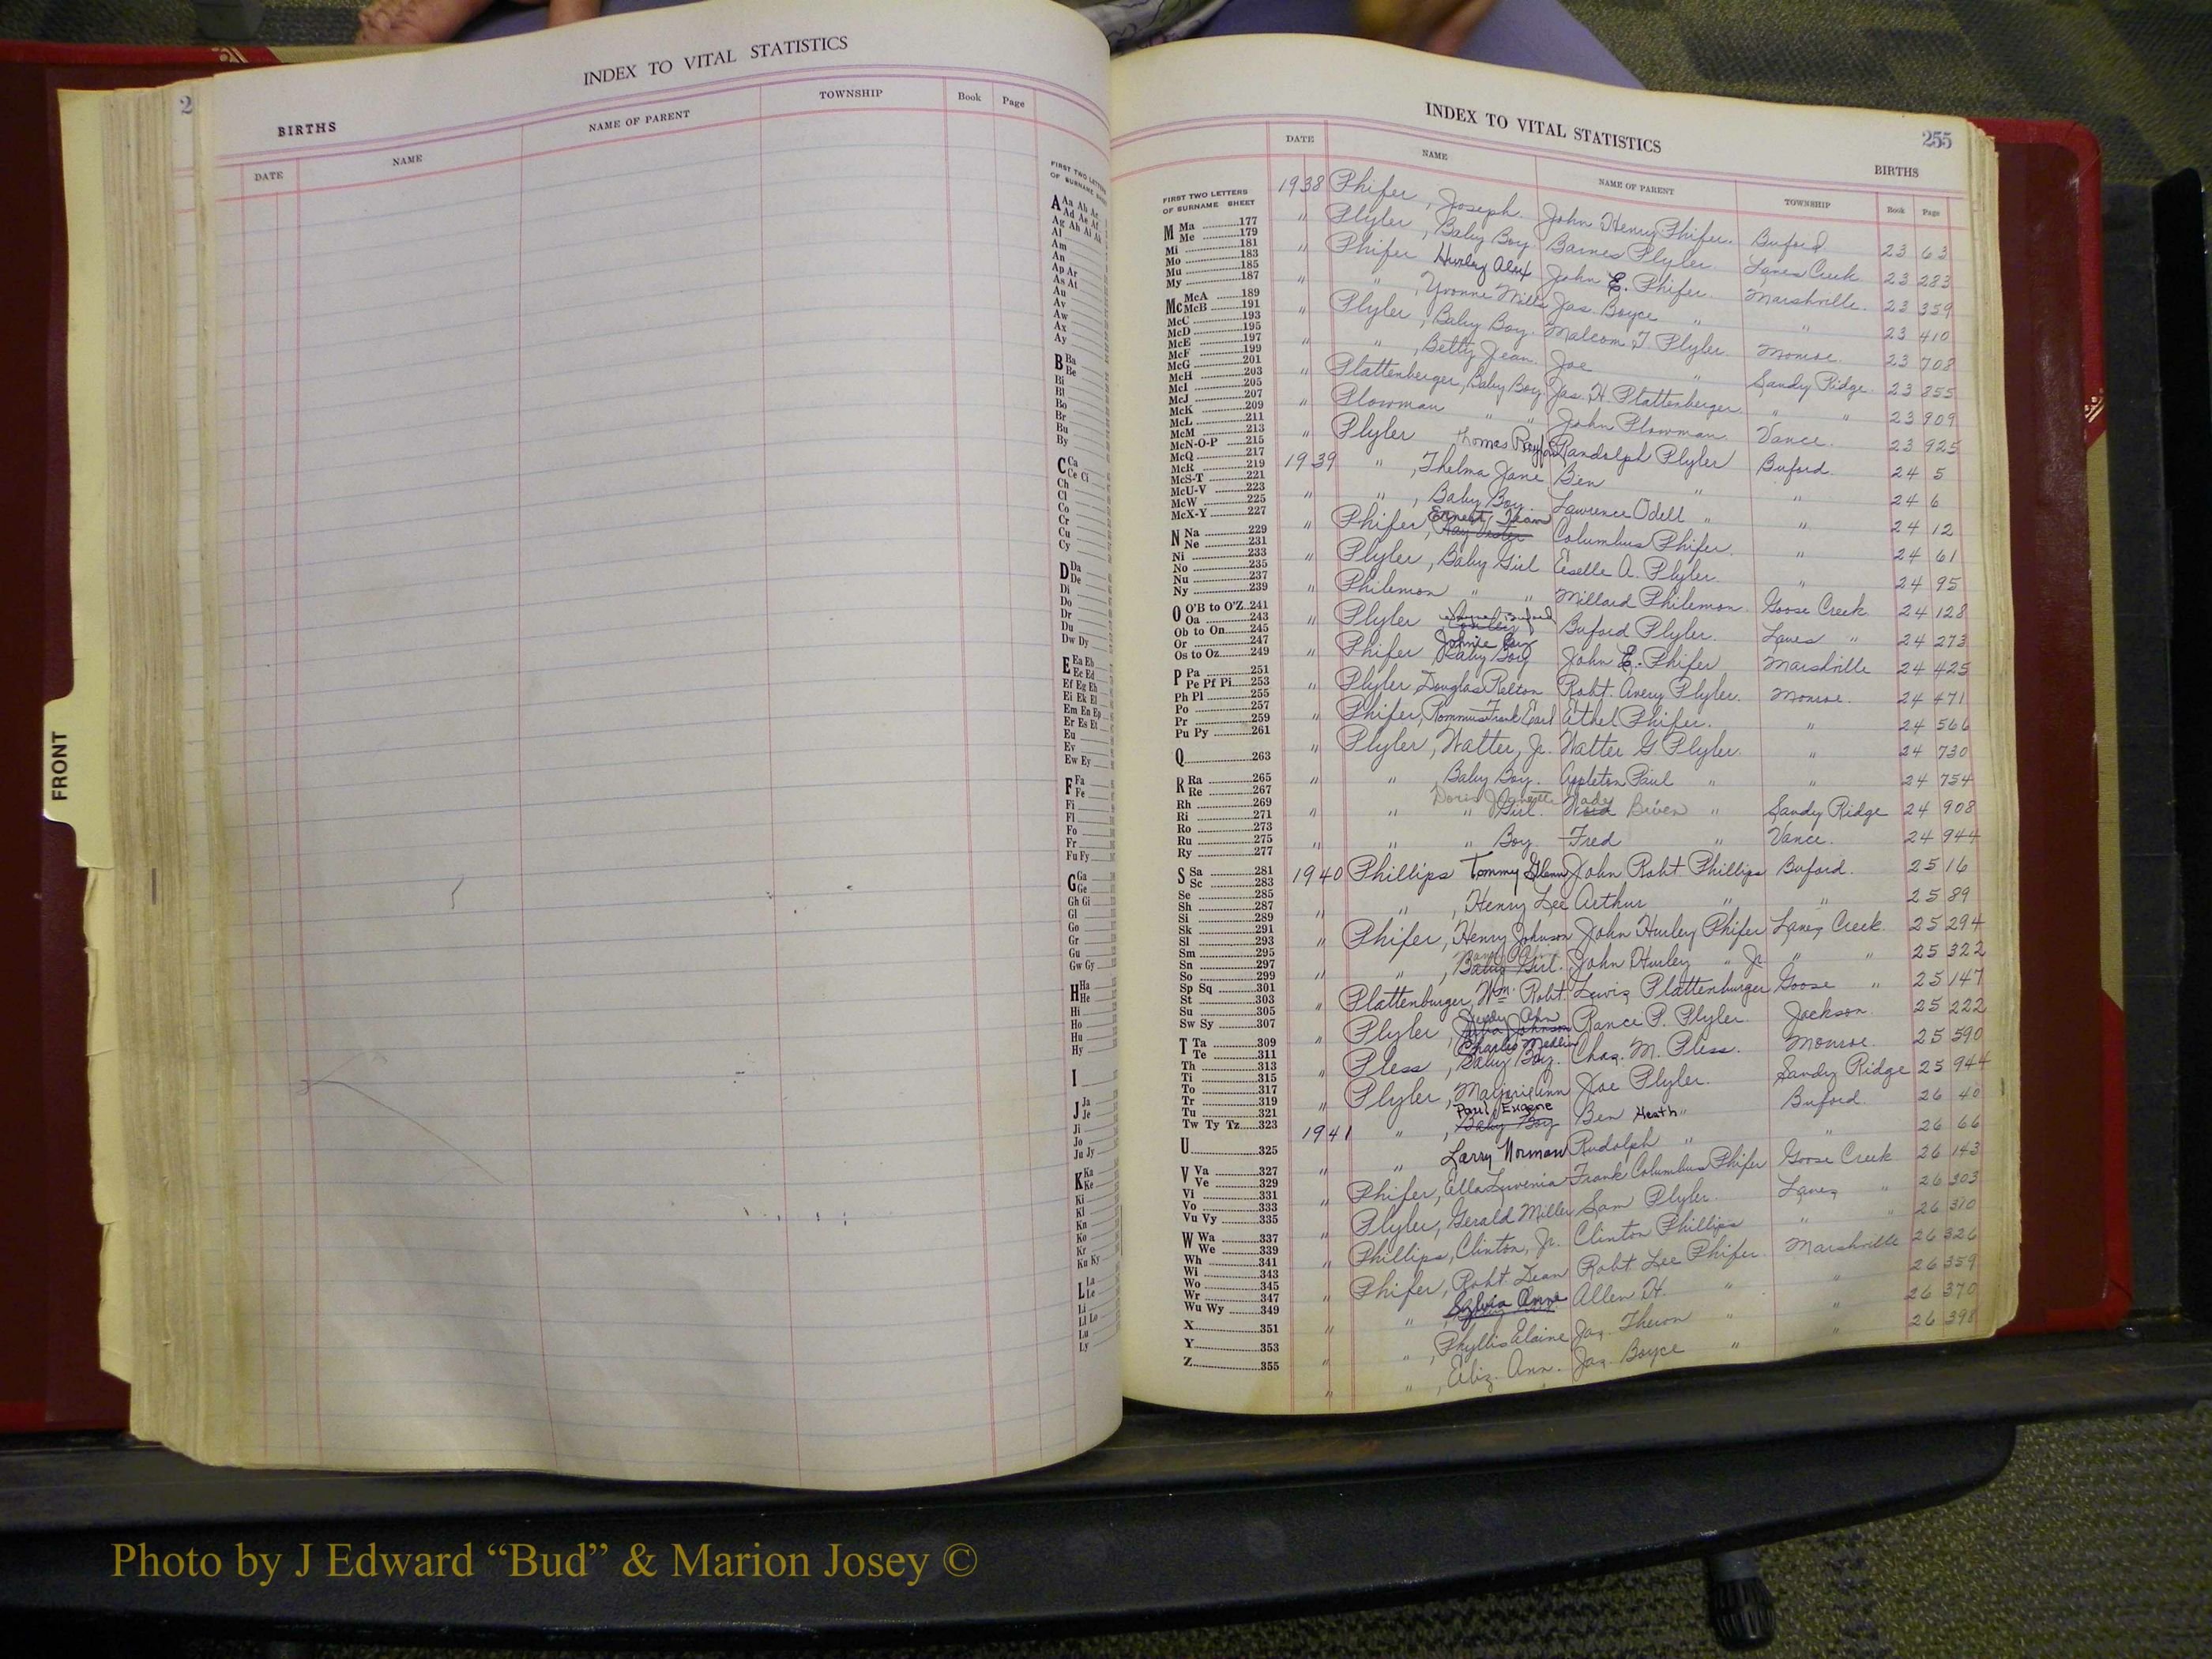 2
INDEX TO VITAL STATISTICS
BIRTHS
DATE NAME NAME OF PARENT TOWNSHIP Book Page
FIRST TWO LETTERS
OF SURNAME
A Aa Ab Ac
Ad Ae Af
Ag Ah Ai Ak
Al
Am
An
Ap Ar
As At
Au
Av
Aw
Ax
Ay
B Ba
Be
Bi
Bl
Bo
Br
Bu
By
C Ca
Ce Ci
Ch
Cl
Co
Cr
Cu
Cy
D Da
De
Di
Do
Dr
Du
Dw Dy
E Ea Eb
Ec Ed
Ef Eg Eh
Ei Ek El
Em En Ep
Er Es Et
Eu
Ev
Ew Ey
F Fa
Fe
Fi
Fl
Fo
Fr
Fu Fy
G Ga
Ge
Gh Gi
Gl
Go
Gr
Gu
Gw Gy
H Ha
He
Hi
Ho
Hu
Hy
I
J Ja
Je
Ji
Jo
Ju Jy
K Ka
Ke
Ki
Kl
Kn
Ko
Kr
Ku Ky
L La
Le
Li
Ll Lo
Lu
Ly
FRONT
INDEX TO VITAL STATISTICS
255
BIRTHS
DATE NAME NAME OF PARENT TOWNSHIP Book Page
FIRST TWO LETTERS
OF SURNAME SHEET
M Ma 177
Me 179
Mi 181
Mo 183
Mu 185
My 187
Mc McA 189
McB 191
McC 193
McD 195
McE 197
McF 199
McG 201
McH 203
McI 205
McJ 207
McK 209
McL 211
McM 213
McN-O-P 215
McQ 217
McR 219
McS-T 221
McU-V 223
McW 225
McX-Y 227
N Na 229
Ne 231
Ni 233
No 235
Nu 237
Ny 239
O O'B to O'Z 241
Oa 243
Ob to On 245
Or 247
Os to Oz 249
P Pa 251
Pe Pf Pi 253
Ph Pl 255
Po 257
Pr 259
Pu Py 261
Q 263
R Ra 265
Re 267
Rh 269
Ri 271
Ro 273
Ru 275
Ry 277
S Sa 281
Sc 283
Se 285
Sh 287
Si 289
Sk 291
Sl 293
Sm 295
Sn 297
So 299
Sp Sq 301
St 303
Su 305
Sw Sy 307
T Ta 309
Te 311
Th 313
Ti 315
To 317
Tr 319
Tu 321
Tw Ty Tz 323
U 325
V Va 327
Ve 329
Vi 331
Vo 333
Vu Vy 335
W Wa 337
We 339
Wh 341
Wi 343
Wo 345
Wr 347
Wu Wy 349
X 351
Y 353
Z 355
1938 Phifer, Joseph John Henry Phifer. Buford 23 63
" Plyler, Baby Boy Barnes Plyler. Lanes Creek 23 283
" Phifer Hurley Alex John E. Phifer. Marshville. 23 359
" " , Yvonne Mills Jas. Boyce " " 23 410
" Plyler, Baby Boy. Malcom T. Plyler. Monroe. 23 708
" " , Betty Jean. Joe " Sandy Ridge. 23 855
" Plattenberger, Baby Boy. Jas. H. Plattenberger " " 23 909
" Plowman " " John Plowman. Vance. 23 925
" Plyler Thomas Randolph Plyler Buford. 24 5
1939 " , Thelma Jane Ben " " 24 6
" " , Baby Boy. Lawrence Odell " " 24 12
" Phifer, Ernest Columbus Phifer. " 24 61
" Plyler, Baby Girl A. Plyler. " 24 95
" Philemon " " Millard Philemon. Goose Creek 24 128
" Plyler Buford Plyler. Lanes " 24 273
" Phifer Johnie Boy Baby Boy John E. Phifer Marshville 24 425
" Plyler, Douglas Relton Robt. Avery Plyler. Monroe. 24 471
" Phifer, Frank Earl Ethel Phifer. " 24 566
" Plyler, Walter, Jr. Walter G. Plyler. " 24 730
" " , Baby Boy. Appleton Paul " " 24 754
" " " Doris Girl. Wade Biven " Sandy Ridge 24 908
" " " Boy Fred " Vance. 24 944
1940 Phillips Tommy Glenn John Robt Phillips Buford. 25 16
" " , Henry Lee Arthur " " 25 89
" Phifer, Henry Johnson John Hurley Phifer Lanes Creek. 25 294
" " , Baby Girl. John Hurley " Jr. " " 25 322
" Plattenburger, Wm. Robt. Lewis Plattenburger Goose " 25 147
" Plyler, Judy Ann Rance P. Plyler. Jackson. 25 222
" Pless, Charles Medlin Baby Boy. Chas. M. Pless. Monroe. 25 590
" Plyler, Marjorie Ann Joe Plyler. Sandy Ridge 25 944
1941 " , Paul Eugene Baby Boy Ben Heath " Buford. 26 40
" " Larry Norman Rudolph " " 26 66
" Phifer, Ella Luvenia Frank Columbus Phifer Goose Creek 26 143
" Plyler, Gerald Miller Sam Plyler. Lanes " 26 303
" Phillips, Clinton, Jr. Clinton Phillips " " 26 310
" Phifer, Robt. Dean Robt Lee Phifer. Marshville 26 326
" " , Sylvia Anne Allen H. " " 26 359
" " , Phyllis Elaine Jas. Theron " " 26 370
" " , Eliz. Ann. Jas. Boyce " " 26 398
Photo by J Edward “Bud” & Marion Josey ©